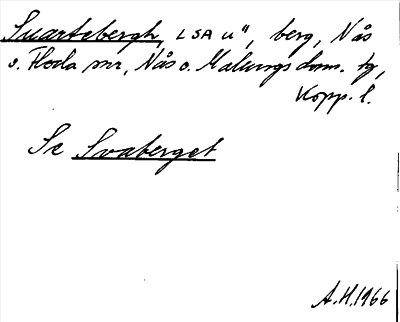 Suartebergh, LSA u", berg, Nås
o. Floda snr, Nås o. Malungs doms. tg,
Kopp. l.
Se Svaberget
A.H. 1966